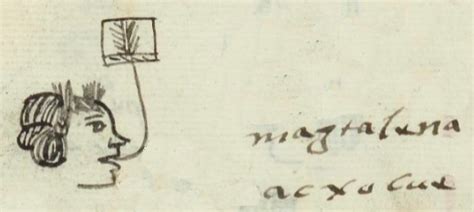 magtalena
acxocue